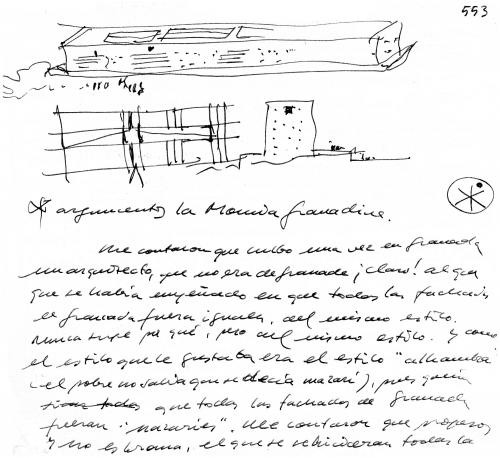 553
argumentos la Movida Granadina.
Me contaron que hubo una vez en Granada
un arquitecto, que no era de granada ¡claro! al que
que se había empeñado en que todas las fachadas
de Granada fueran iguales, del mismo estilo.
Nunca supe por qué, pero del mismo estilo. Y como
el estilo que le gustaba era el estilo "alhambra"
(el pobre no sabía que se decía nazarí), pues quería
que todas las fachadas de Granada
fueran "nazaríes". Me contaron que propuso
y no es broma, el que se rehicieran todas la